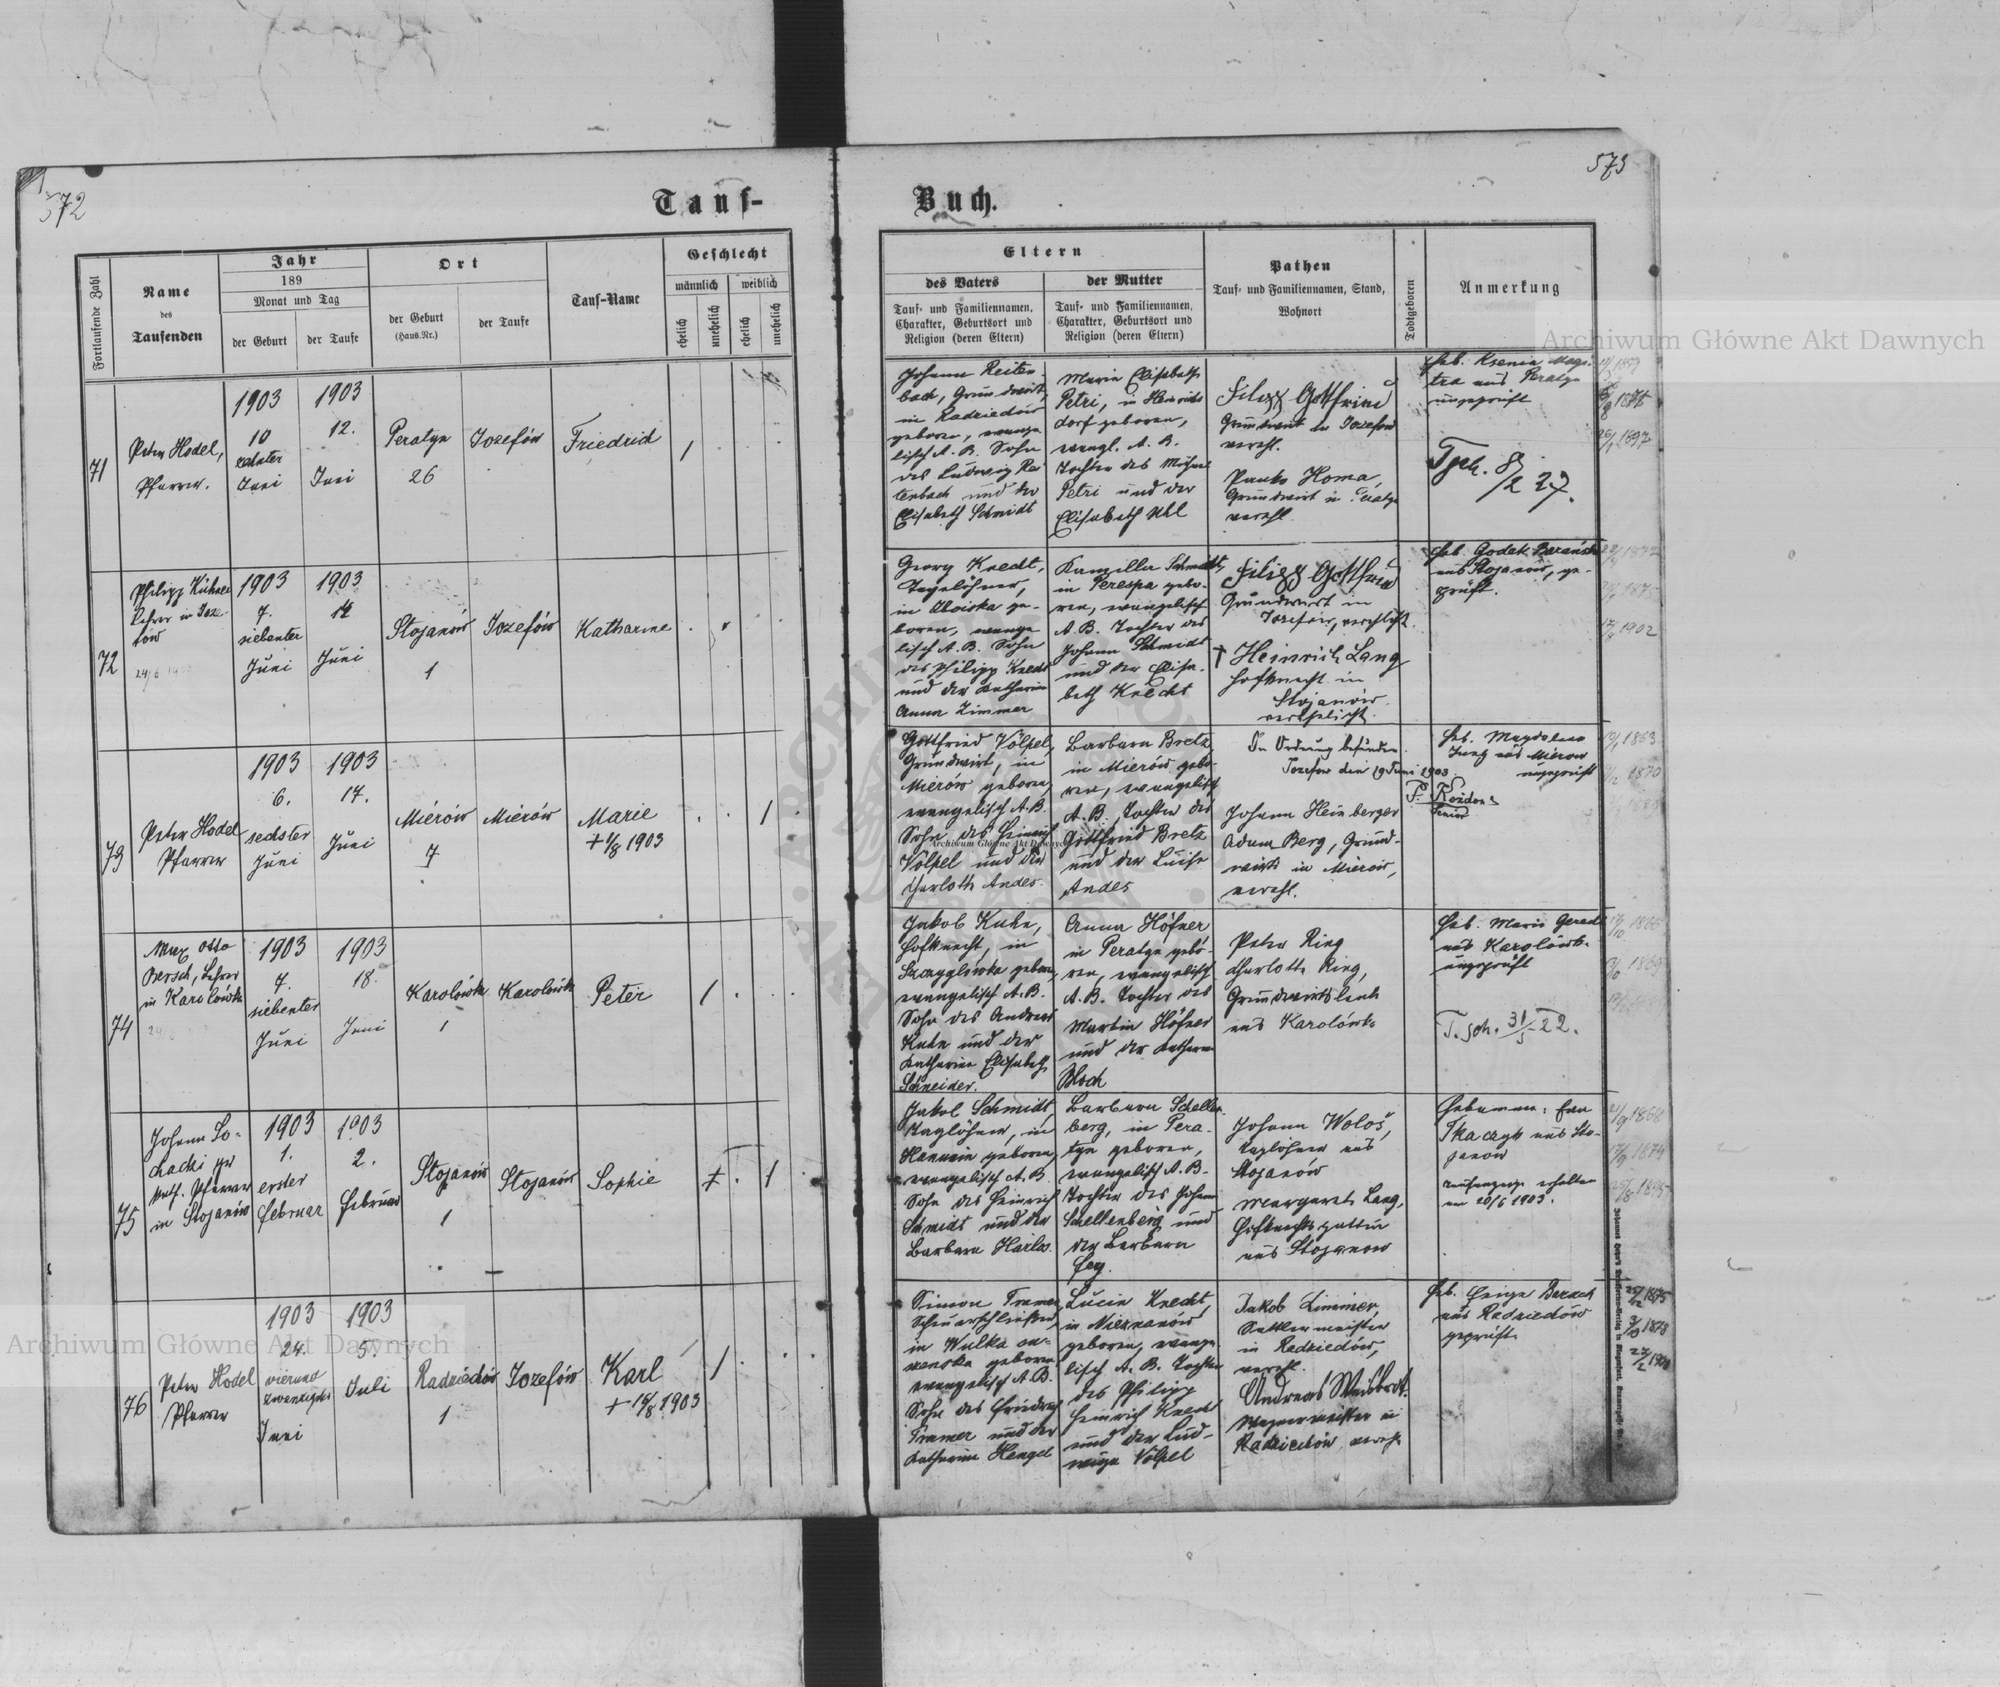 572
573
Tauf-
Buch.
Fortlaufende Zahl
Name
des
Taufenden
Jahr
189
Monat und Tag
der Geburt
der Taufe
Ort
der Geburt
(Haus-Nr.)
der Taufe
Tauf-Name
Geschlecht
männlich
weiblich
ehelich
unehelich
ehelich
unehelich
Eltern
des Vaters
Tauf- und Familiennamen,
Charakter, Geburtsort und
Religion (deren Eltern)
der Mutter
Tauf- und Familiennamen,
Charakter, Geburtsort und
Religion (deren Eltern)
Pathen
Tauf- und Familiennamen, Stand,
Wohnort
Todtgeboren
Anmerkung
Archiwum Główne Akt Dawnych
71
Peter Hodel,
Pfarrer.
1903
10
zehnter
Juni
1903
12.
Juni
Peratyn
26
Jozefów
Friedrich
1
Johann Reiten-
bach, Grundwirt,
in Radziechów
geboren, evange
lisch A. B. Sohn
des Ludwig Rei
tenbach und der
Elisabeth Schmidt
Maria Elisabeth
Petri, in Heinrichs
dorf geboren,
evangl. A. B.
Tochter des
Petri und der
Elisabeth Uhl
Filipp Gottfried
Grundwirt in Jozefow
verehl.
Panko Homa,
Grundwirt in Peratyn
verehl.
Heb. Ksenia
aus Peratyn
ungeprüft
72
Philipp Kühner
Lehrer in Joze-
fow
1903
7.
siebenter
Juni
1903
14
Juni
Stojanów
1
Jozefów
Katharine
Georg Knecht,
Tagelöhner,
in ge-
boren, evange
lisch A. B. Sohn
des Philipp Knecht
und der Katharina
Anna Zimmer
Kamilla Schmidt,
in Perespa gebo-
ren, evangelisch
A. B. Tochter des
Johann Schmidt
und der Elisa-
beth Knecht
Filipp Gottfried
Grundwirt in
Jozefow, verehlicht.
† Heinrich Lang
Hofknecht in
Stojanów
verehelicht.
Heb. Godek
aus Stojanow, ge-
prüft.
73
Peter Hodel
Pfarrer
1903
6.
sechster
Juni
1903
17.
Juni
Mierów
7
Mierów
Marie
+ 1/8 1903
1
Gottfried Völpel,
Grundwirt, in
Mierów geboren,
evangelisch A. B.
Sohn des Heinrich
Völpel und der
Charlotte Andes.
Barbara Bretz,
in Mierów gebo-
ren, evangelisch
A. B. Tochter des
Gottfried Bretz
und der Luise
Andes
In Ordnung befunden.
Jozefow den 19 Juni 1903
Senior
Johann Heinberger
Adam Berg, Grund-
wirte in Mierów,
verehl.
Heb. Magdalena
Jung aus Mierow
ungeprüft
Archiwum Główne Akt Dawnych
74
Max Otto
Lehrer
in Karolówka
1903
7.
siebenter
Juni
1903
18.
Juni
Karolówka
1
Karolówka
Peter
1
Jakob Kuhn,
Hofknecht, in
Szczyglówka geboren,
evangelisch A. B.
Sohn des Andreas
Kuhn und der
Katharina Elisabeth
Schneider.
Anna Höfner
in Peratyn gebo-
ren, evangelisch
A. B. Tochter des
Martin Höfner
und der Katharina
Bloch
Peter Ring
Charlotte Ring,
Grundwirtsleute
aus Karolówka
Heb. Maria
aus Karolówka
ungeprüft
T. sch. 31/5 22.
75
Johann
gr
kath. Pfarrer
in Stojanów
1903
1.
erster
Februar
1903
2.
Februar
Stojanów
1
Stojanów
Sophie
1
Jakob Schmidt,
Taglöhner, in
Hanunin geboren,
evangelisch A. B.
Sohn des Heinrich
Schmidt und der
Barbara Harlos.
Barbara Schellen-
berg, in Pera-
tyn geboren,
evangelisch A. B.
Tochter des Johann
Schellenberg und
der Barbara
Johann Wołoś,
Taglöhner aus
Stojanów
Margareta Lang,
Hofknechtsgattin
aus Stojanow
Hebamme: Eva
Tkaczyk aus Sto-
janow
Taufanzeige erhalten
am 20/6 1903.
76
Peter Hodel
Pfarrer
1903
24.
vierund
zwanzigster
Juni
1903
5.
Juli
Radziechów
1
Jozefów
Karl
+ 14/8 1903
1
Simon Tramer,
in Wulka
geboren
evangelisch A. B.
Sohn des Friedrich
Tramer und der
Katharina Hengel
Lucia Knecht,
in Nieznanów
geboren, evange
lisch A. B. Tochter
des Philipp
Heinrich Knecht
und der Lud-
wiga Völpel
Jakob Zimmer,
Sattlermeister
in Radziechów,
verehl.
Andreas Weisbrot
Wagnermeister in
Radziechów, verehl.
Heb. Feige Barach
aus Radziechów
geprüft
Archiwum Główne Akt Dawnych